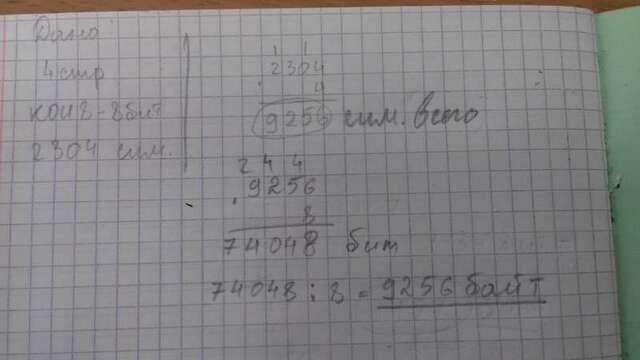 Дано
4 стр
КОИ8-8бит
2304 сим.
2304
4
9256 сим. всего
2 4 4
9256
8
74048 бит
74048 : 8 = 9256 байт